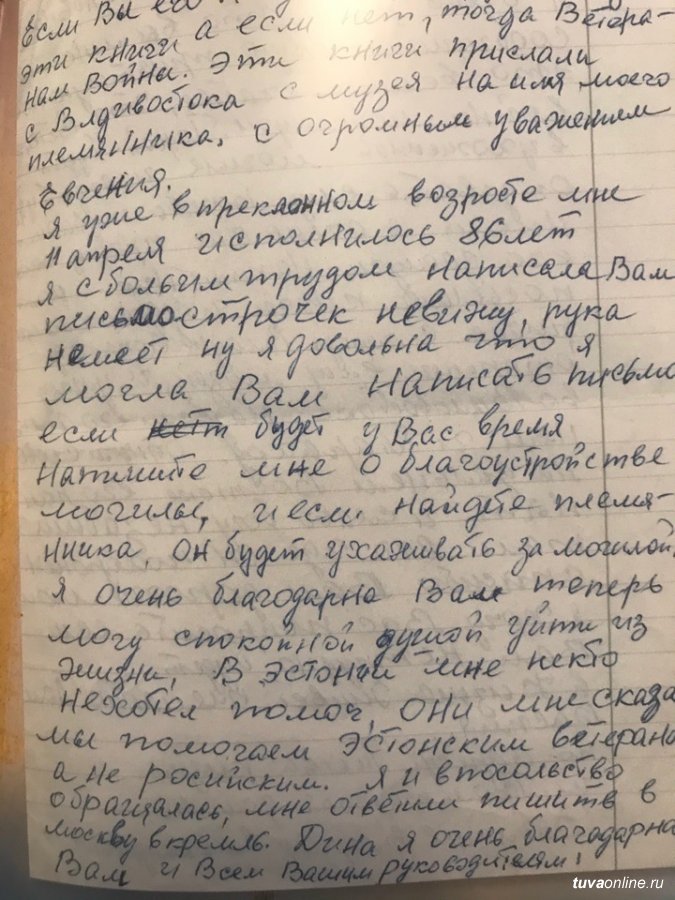 Если Вы его
эти книги а если нет, тогда Ветора-
нам Войны. Эти книги прислали
с Влдивостока с музея на имя моего
племянника, с огромным уважением
Евгения.
я уже в преклонном возросте мне
11 апреля исполнилось 86 лет
я с большим трудом написала Вам
письмо строчек невижу, рука
немеет ну я довольна что я
могла Вам написать письмо
если нет будет у Вас время
Напишите мне о благоустройстве
могилы, и если найдете племя-
нника, он будет ухаживать за могилой.
я очень благодарна Вам теперь
могу спокойной душой уйти из
жизни, В Эстонии мне некто
нехотел помоч, они мне сказа
мы помогаем эстонским ветерана
а не росийским. я и в посольство
обращалась, мне ответили пишите в
москву в кремль. Дина я очень благодарна
Вам и Всем Вашим руководителям!
tuvaonline.ru